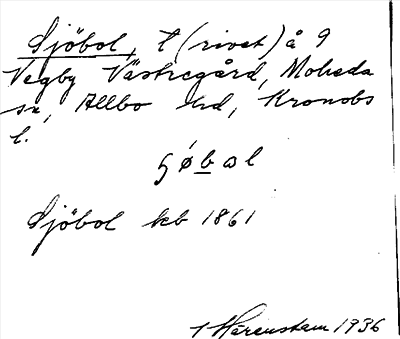 Sjöbol, t (rivet) å 9
Vegby Västregård, Moheda
sn, Allbo hd, Kronobs
l.
Sjöbol kb 1861
Härenstam 1936